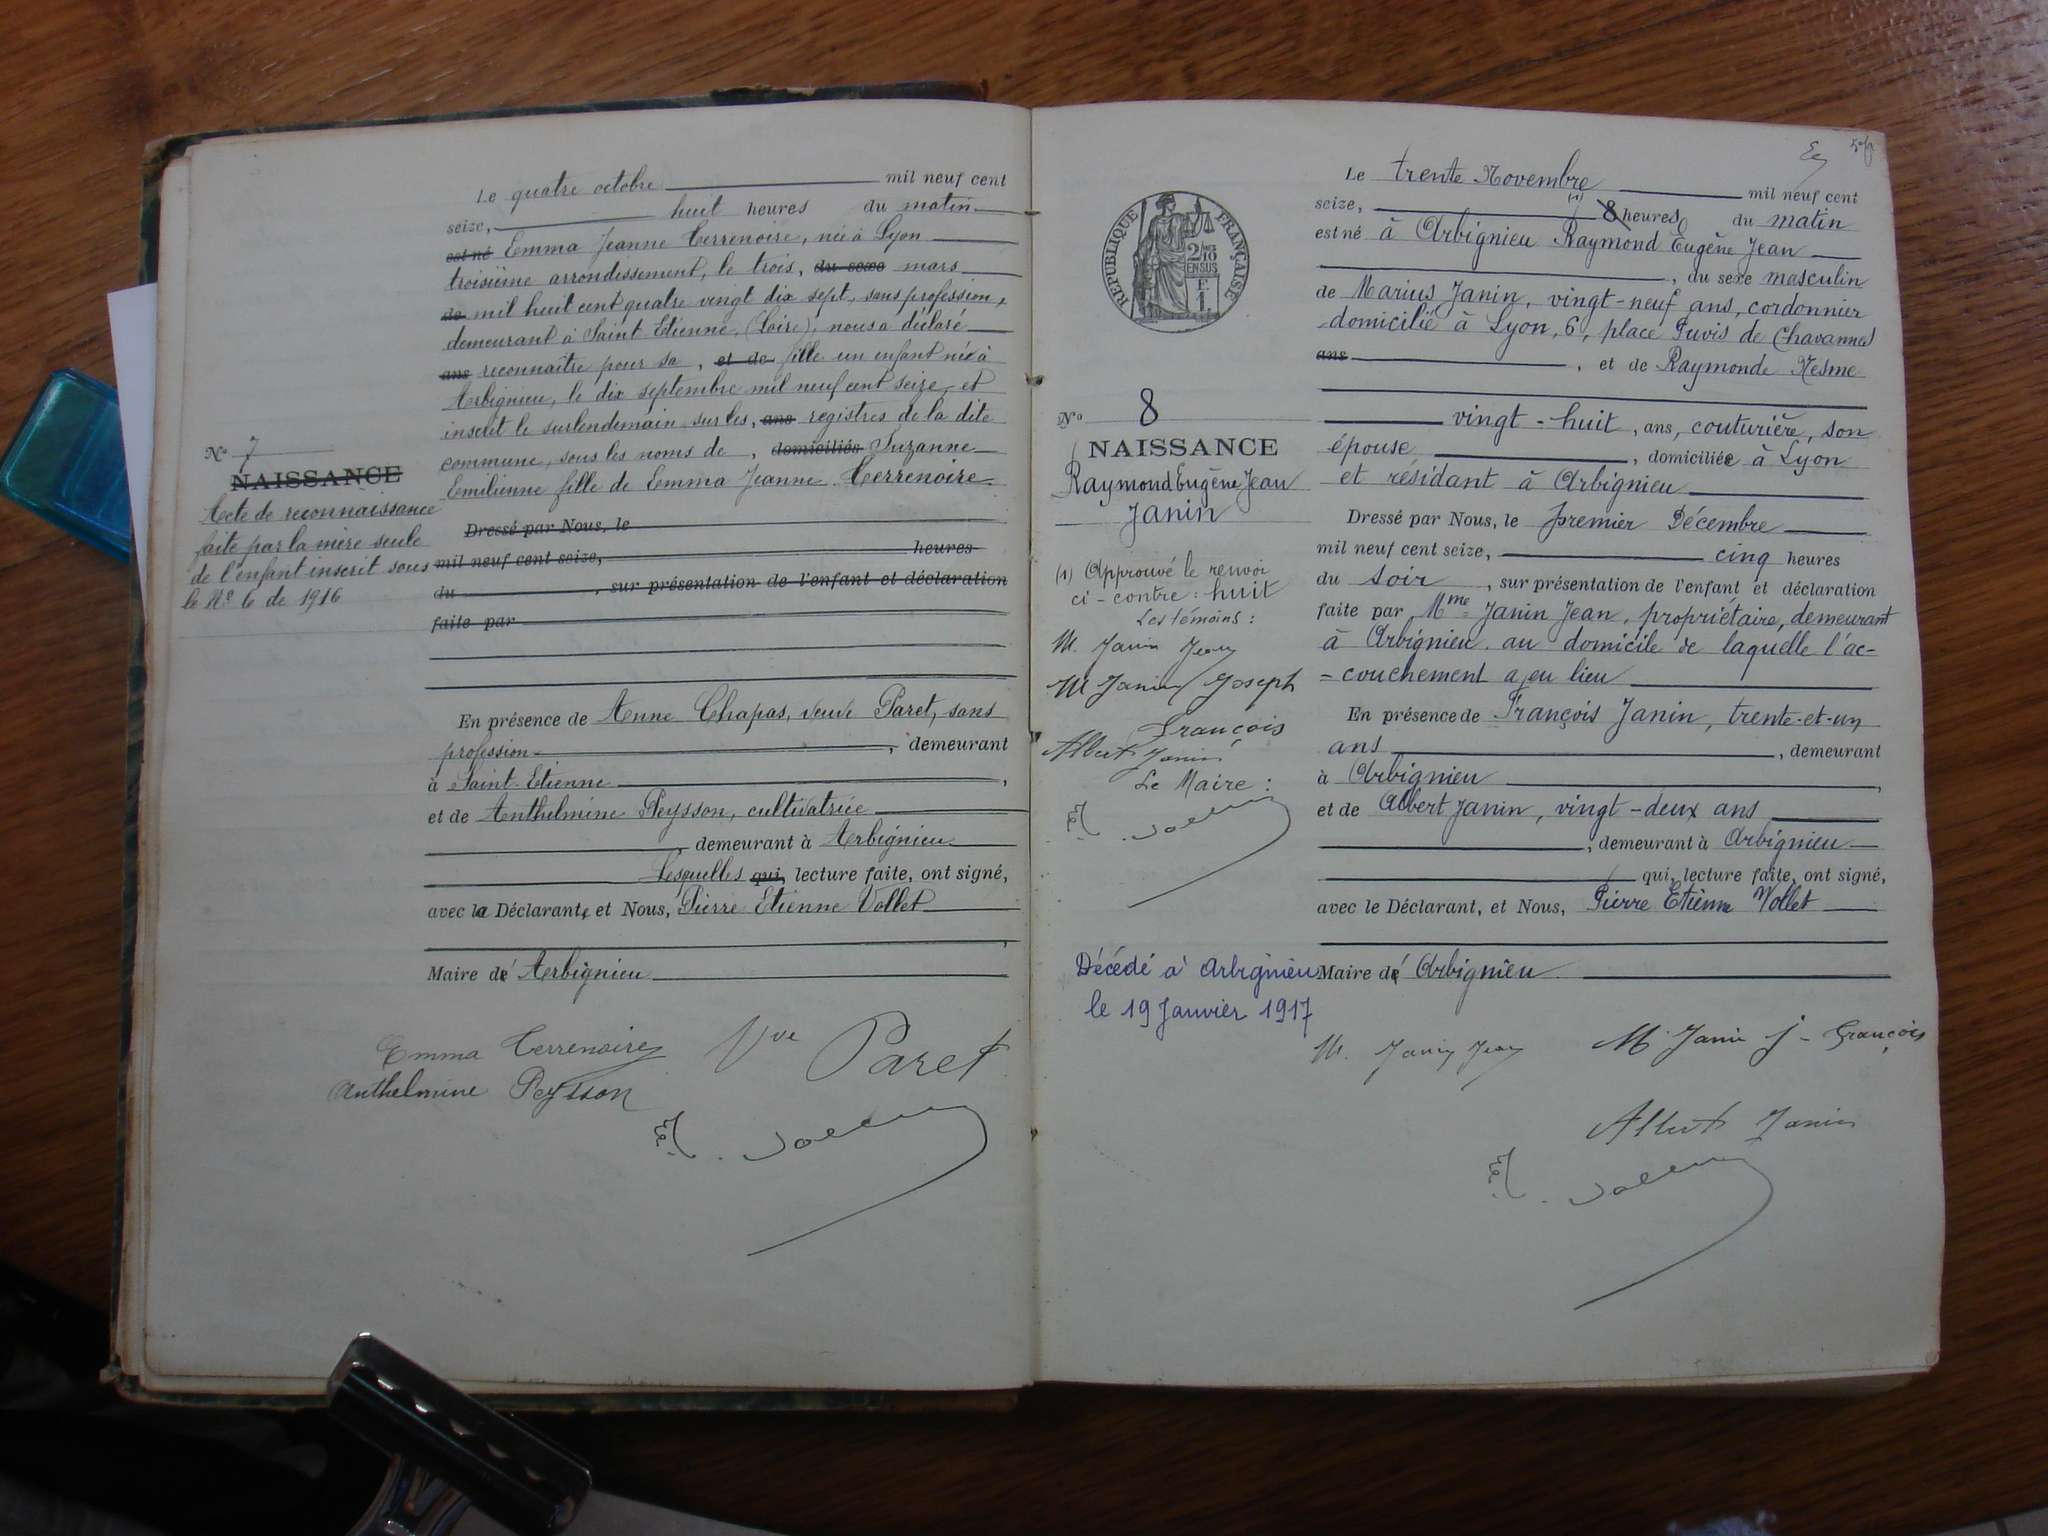 Le quatre octobre mil neuf cent
seize, huit heures du matin
est né Emma Jeanne Terrenoire, née à Lyon
troisième arrondissement, le trois, du sexe mars
de mil huit cent quatre vingt dix sept, sans profession,
demeurant à Saint Etienne, (Loire), nous a déclaré
ans reconnaître pour sa, et de fille un enfant née à
Arbignieu, le dix septembre mil neuf cent seize et
inscrit le surlendemain sur les, ans registres de la dite
commune, sous les noms de, domiciliés Suzanne
Emilienne fille de Emma Jeanne Terrenoire
N° 7
NAISSANCE
Acte de reconnaissance
faite par la mère seule
de l'enfant inscrit sous
le N° 6 de 1916
Dressé par Nous, le
mil neuf cent seize, heures
du , sur présentation de l'enfant et déclaration
faite par
En présence de Anne Chapas, veuve Paret, sans
profession , demeurant
à Saint-Etienne ,
et de Anthelmine Peysson, cultivatrice
, demeurant à Arbignieu
Lesquelles qui, lecture faite, ont signé,
avec la Déclarante, et Nous, Pierre Etienne Vollet
,
Maire d' Arbignieu
Emma Terrenoire Vve Paret
Anthelmine Peysson
Le trente Novembre mil neuf cent
seize, (1) 8 heures du matin
est né à Arbignieu Raymond Eugène Jean
, du sexe masculin
de Marius Janin, vingt-neuf ans, cordonnier
domicilié à Lyon, 6, place Puvis de Chavannes
ans , et de Raymonde Nesme
vingt-huit, ans, couturière, son
épouse , domiciliée à Lyon
et résidant à Arbignieu
Dressé par Nous, le premier Décembre
mil neuf cent seize, cinq heures
du soir , sur présentation de l'enfant et déclaration
faite par Mme Janin Jean, propriétaire, demeurant
à Arbignieu au domicile de laquelle l'ac-
-couchement a eu lieu
En présence de François Janin, trente-et-un
ans , demeurant
à Arbignieu ,
et de Albert Janin, vingt-deux ans
, demeurant à Arbignieu
qui, lecture faite, ont signé,
avec le Déclarant, et Nous, Pierre Etienne Vollet
Maire d' Arbignieu
RÉPUBLIQUE FRANÇAISE
2/10 EN SUS
F. 1
N° 8
NAISSANCE
Raymond Eugène Jean
Janin
(1) Approuvé le renvoi
ci-contre : huit
Les témoins :
M. Janin Jean
M Janin Joseph
François
Albert Janin
Le Maire :
Décédé à Arbignieu
le 19 Janvier 1917
M. Janin Jean M Janin J - François
Albert Janin